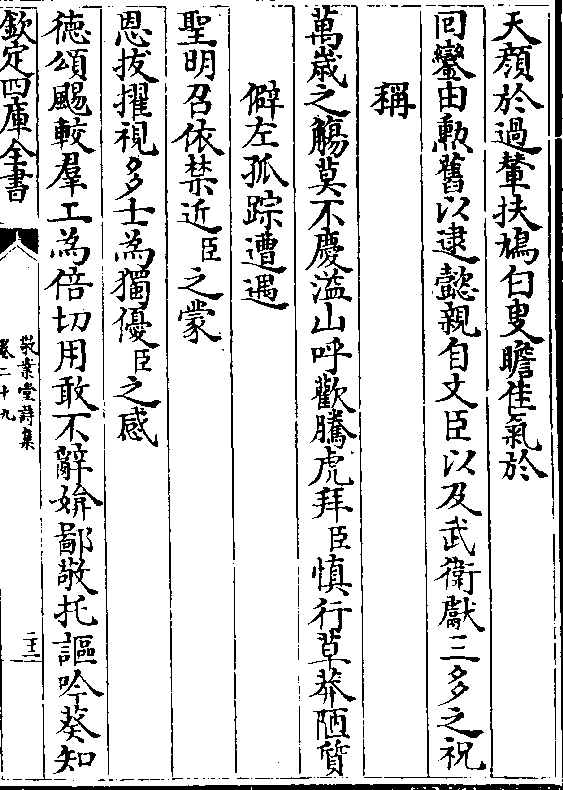 天顔於過輦扶鳩白叟瞻佳氣於
回鑾由勲舊以逮懿親自文臣以及武衛獻三多之祝
稱
萬歳之觴莫不慶溢山呼歡騰虎拜臣慎行草莽陋質
僻左孤踪遭遇
聖明召依禁近臣之蒙
恩拔擢視多士為獨優臣之感
徳頌颺較羣工為倍切用敢不辭媕鄙敬托謳吟葵知
欽定四庫全書
敬業堂詩集
卷二十九
二十二